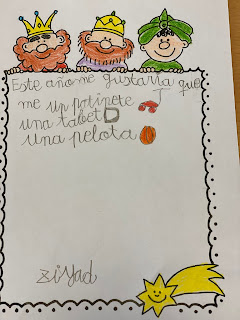 Este año me gustaria que
me un patinete
una tablet
una pelota
ziyad